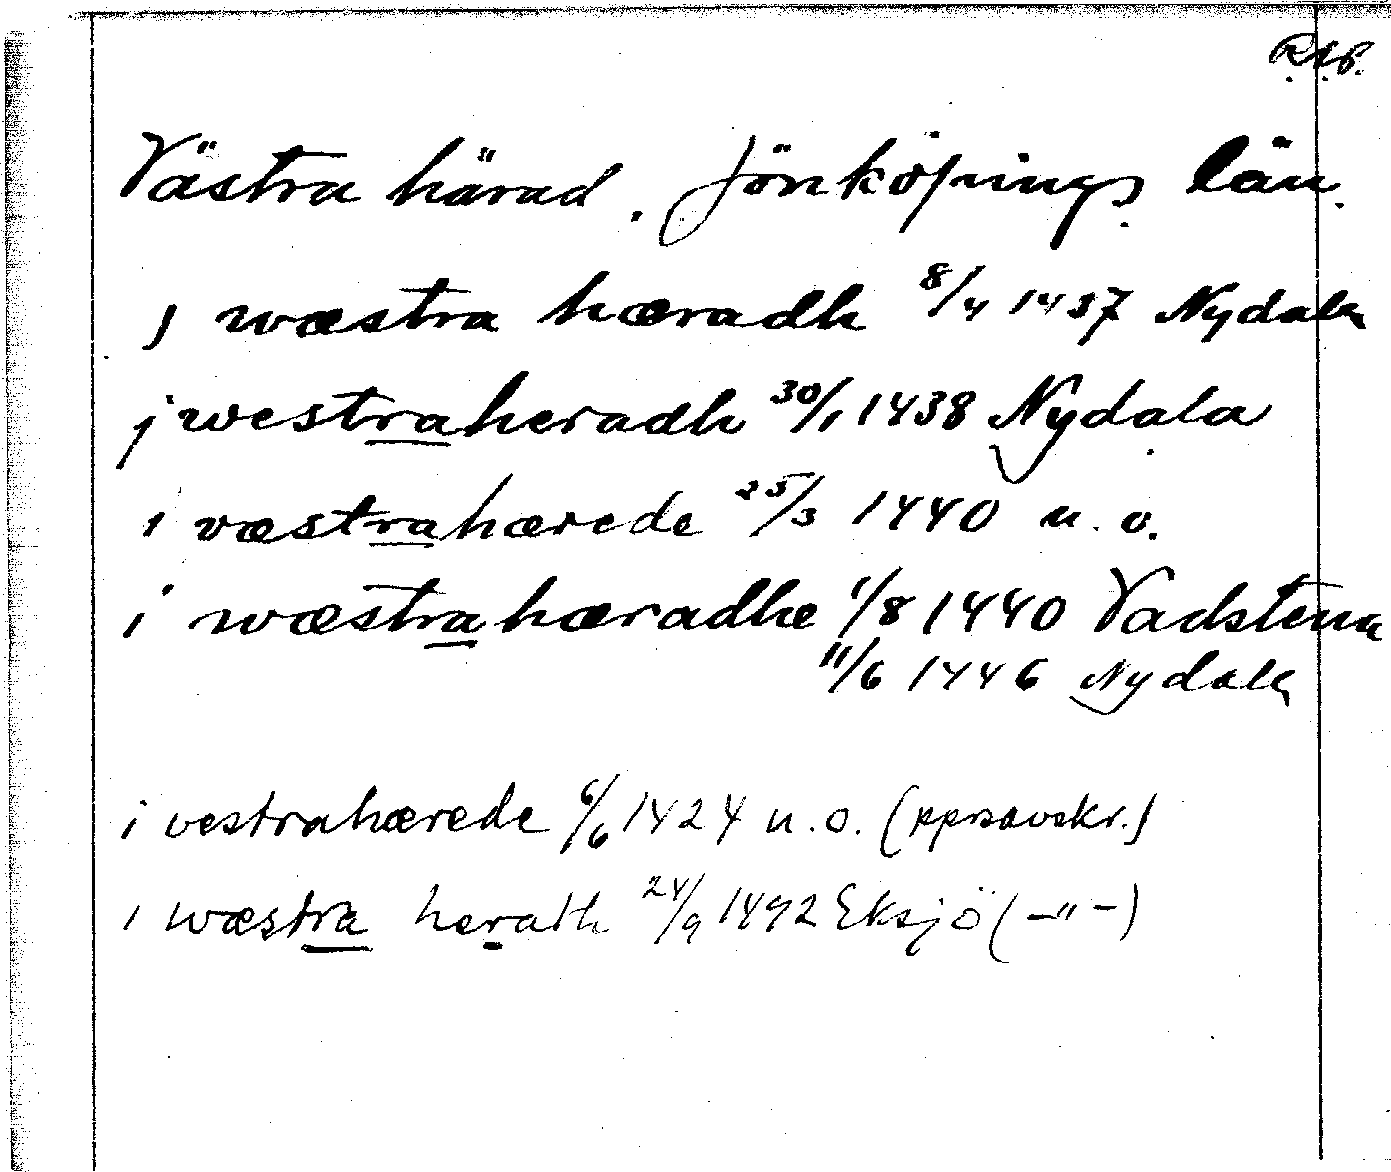 R.A.P.
Västra härad. Jönköpings län.
J wæstra hæradh 8/4 1437 Nydala
j westraheradh 30/1 1438 Nydala
i væstrahærede 25/3 1440 u.o.
i wæstrahæradhe 1/8 1440 Vadstena
11/6 1446 Nydala
i vestrahærede 6/6 1424 u.o. (pprsavskr.)
i wæstra herath 24/9 1492 Eksjö (-"-)